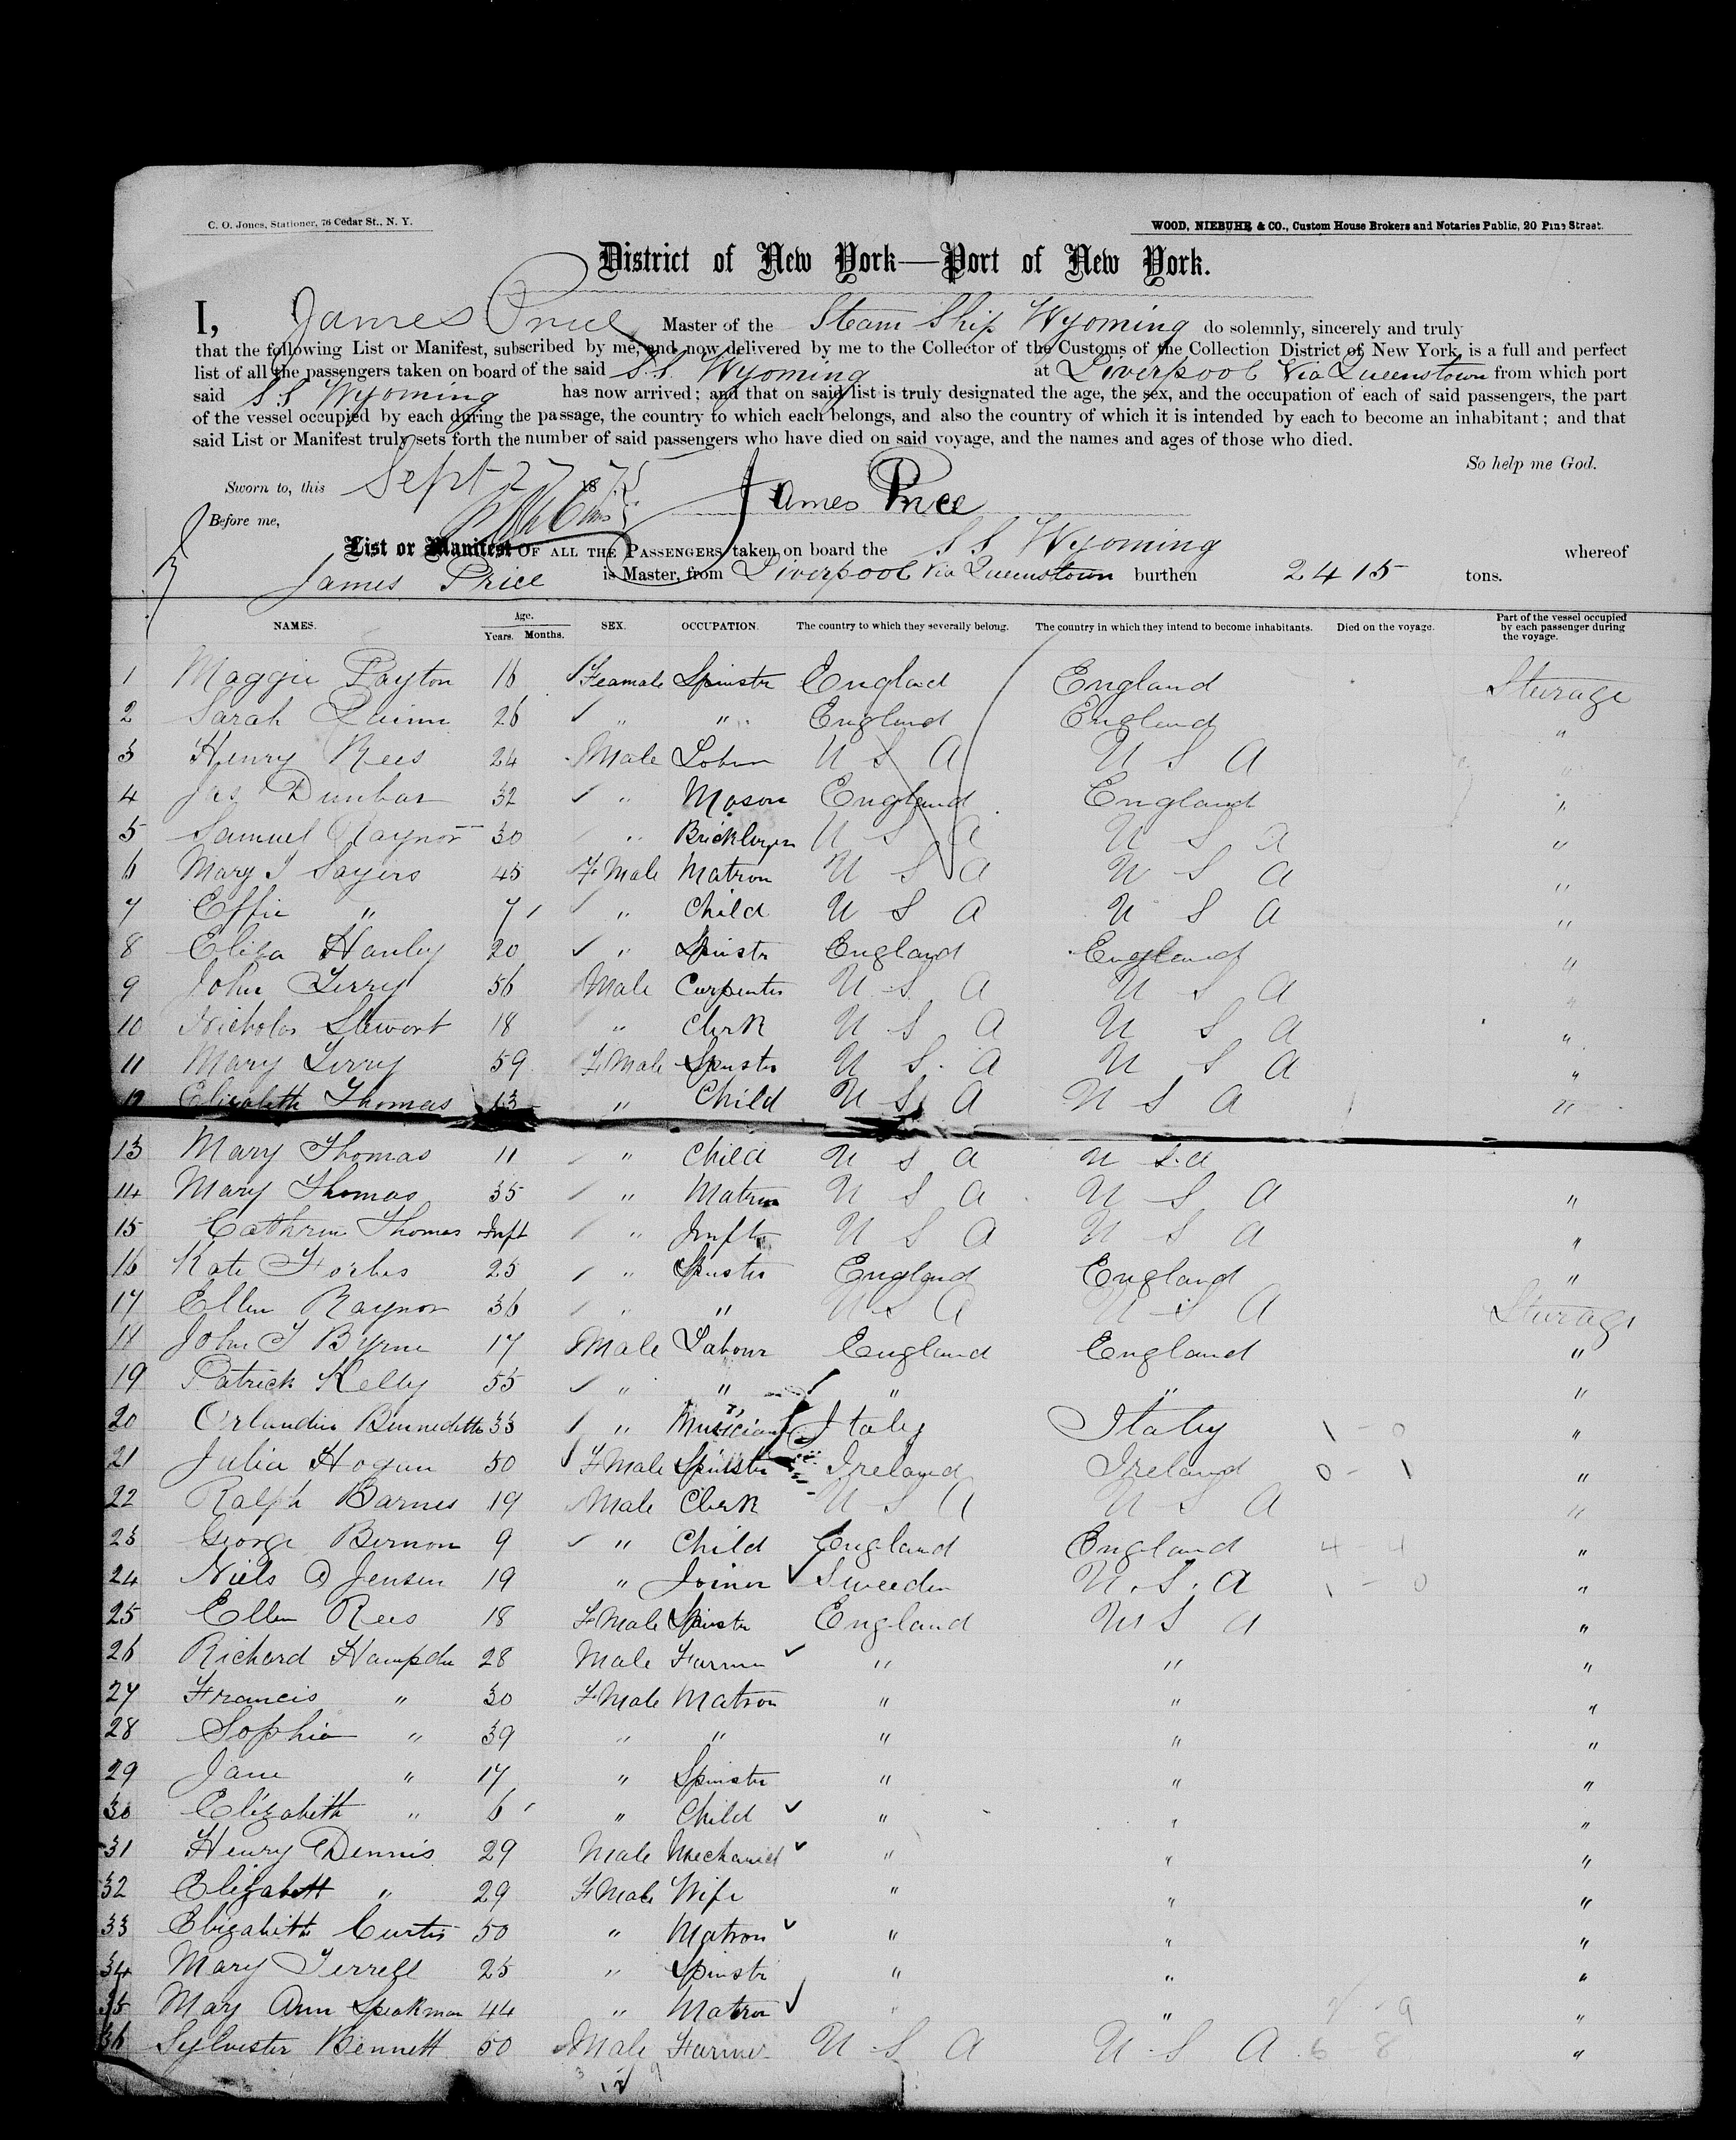 C. O. Jones, Stationer, 76 Cedar St., N. Y.
WOOD, NIEBUHR & CO., Custom House Brokers and Notaries Public, 20 Pine Street.
District of New York—Port of New York.
I, James Price Master of the Steam Ship Wyoming do solemnly, sincerely and truly
that the following List or Manifest, subscribed by me, and now delivered by me to the Collector of the Customs of the Collection District of New York, is a full and perfect
list of all the passengers taken on board of the said S.S. Wyoming at Liverpool Via Queenstown from which port
said S S Wyoming has now arrived; and that on said list is truly designated the age, the sex, and the occupation of each of said passengers, the part
of the vessel occupied by each during the passage, the country to which each belongs, and also the country of which it is intended by each to become an inhabitant; and that
said List or Manifest truly sets forth the number of said passengers who have died on said voyage, and the names and ages of those who died.
So help me God.
Sworn to, this Sept 27 1875 James Price
Before me,
List or Manifest OF ALL THE PASSENGERS taken on board the S S Wyoming whereof
James Price is Master, from Liverpool via Queenstown burthen 2415 tons.
NAMES. Age. Years. Months. SEX. OCCUPATION. The country to which they severally belong. The country in which they intend to become inhabitants. Died on the voyage. Part of the vessel occupied by each passenger during the voyage.
1 Maggie Payton 16 Feamale Spinstr Englad England Sturage
2 Sarah Quinn 26 " " England England "
3 Henry Rees 24 Male Lobur U S A U S A "
4 Jas Dunbar 32 " Mason England England "
5 Samuel Raynor 30 " U S A U S A "
6 Mary J Sayers 45 F Male Matron U S A U S A "
7 Effie " 7 " Child U S A U S A "
8 Eliza Hanley 20 " Spinstr England England "
9 John Terry 56 Male Carpenter U S A U S A "
10 Nicholas Stewart 18 " Clerk U S A U S A "
11 Mary Terry 59 F Male Spinster U S A U S A "
12 Elizabeth Thomas 13 " Child U S A U S A "
13 Mary Thomas 11 " Child U S A U S A
14 Mary Thomas 35 " Matron U S A U S A "
15 Cathrin Thomas Inft " Inft U S A U S A "
16 Kate Forbes 25 " Spinster England England "
17 Ellen Raynor 36 " " U S A U S A Sturage
18 John J Byrne 17 Male Labour England England "
19 Patrick Kelly 55 " " " " "
20 Bennedetto 33 " Musician Italy Italy 1 - 0 "
21 Julia Hogan 50 F Male Spinster Ireland Ireland 0 - 1 "
22 Ralph Barnes 19 Male Clerk U S A U S A "
23 George Bernon 9 " Child England England 4 - 4 "
24 Niels D Jensen 19 " Joiner Sweeden U.S.A 1 - 0 "
25 Ellen Rees 18 F Male Spinstr England U S A "
26 Richard Hampden 28 Male Farmer " " "
27 Francis " 30 F Male Matron " " "
28 Sophia " 39 " " " " "
29 Jane " 17 " Spinster " " "
30 Elizabeth " 6 " Child " " "
31 Henry Dennis 29 Male Mechanick " " "
32 Elizabett " 29 F Male Wife " " "
33 Elizabeth Curtis 50 " Matron " " "
34 Mary Terrell 25 " Spinstr " " "
35 Mary Ann Speakman 44 " Matron " " "
36 Sylvester Bennett 50 Male Farmer U S A U S A 6 8 "